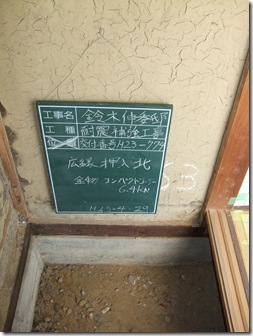 工事名 鈴木伸委氏邸
工種 耐震補強工事
交付番号 H23-779
広縁 押入 北
金物 コンパクトコーナー
6.4kN
H23-4-29
63